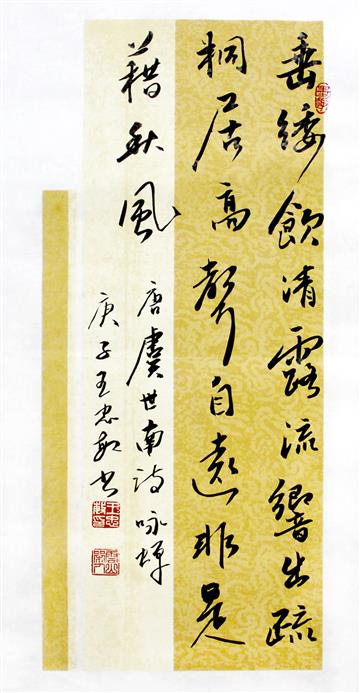 垂緌飲清露流響出疏
桐居高聲自遠非是
藉秋風
唐虞世南诗咏蝉
庚子王忠书